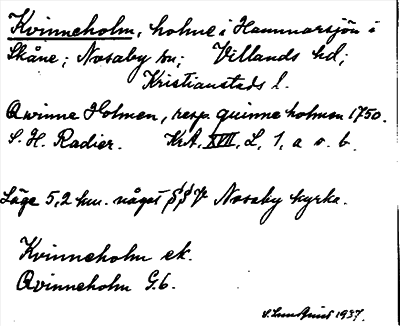 Kvinneholm, holme i Hammarsjön i
Skåne; Nosaby sn; Villands hd;
Kristianstads l.
Qvinne Holmen, resp. quinne holmen 1750.
S. H. Radier. KrA, XVII, L, 1, a o. b.
Läge 5,2 km. något S V Nosaby kyrka.
Kvinneholm ek.
Qvinneholm G.b.
S. Lundquist 1937.